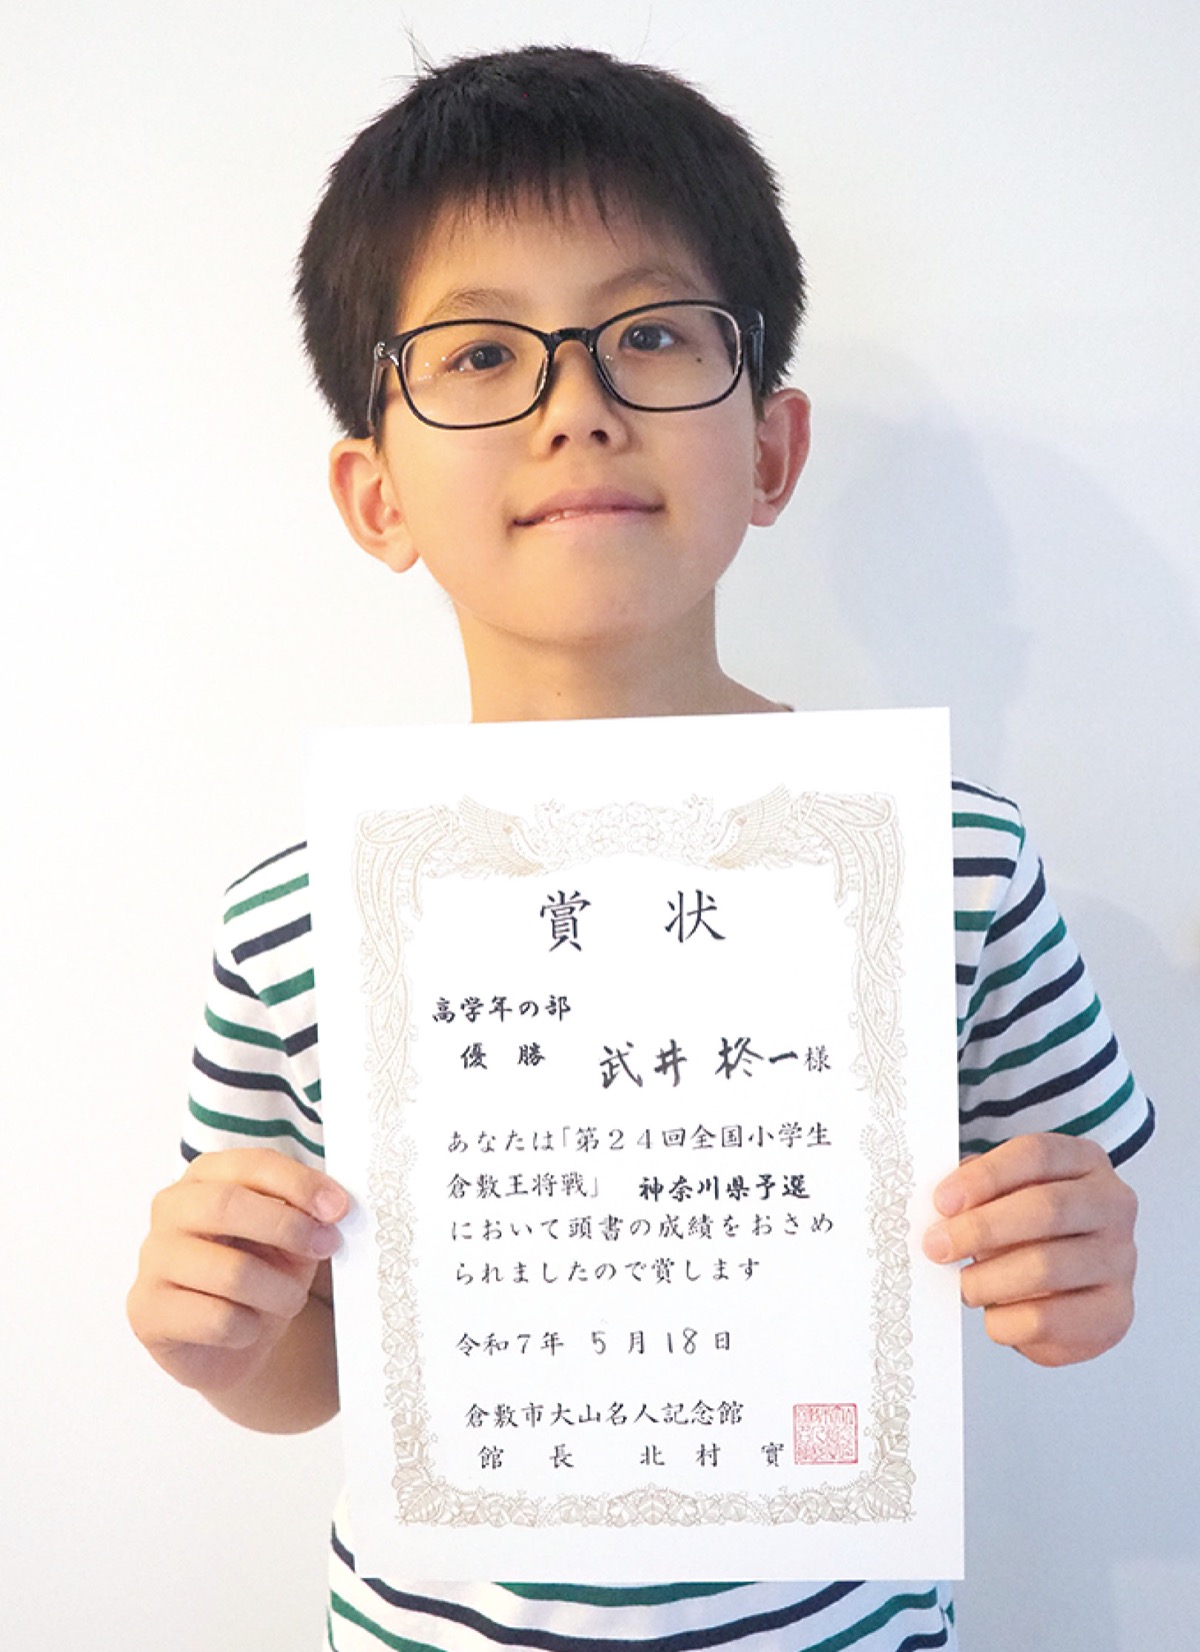 賞 状
高学年の部
優 勝 武井 柊一様
あなたは「第24回全国小学生
倉敷王将戦」 神奈川県予選
において頭書の成績をおさめ
られましたので賞します
令和7年 5月18日
倉敷市大山名人記念館
館 長 北 村 實